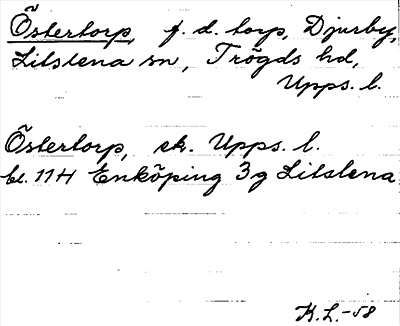 Östertorp, f. d. torp, Djurby,
Litslena sn, Trögds hd,
Upps. l.
Östertorp, ek. Upps. l.
bl. 11H Enköping 3g Litslena
K.L.-58